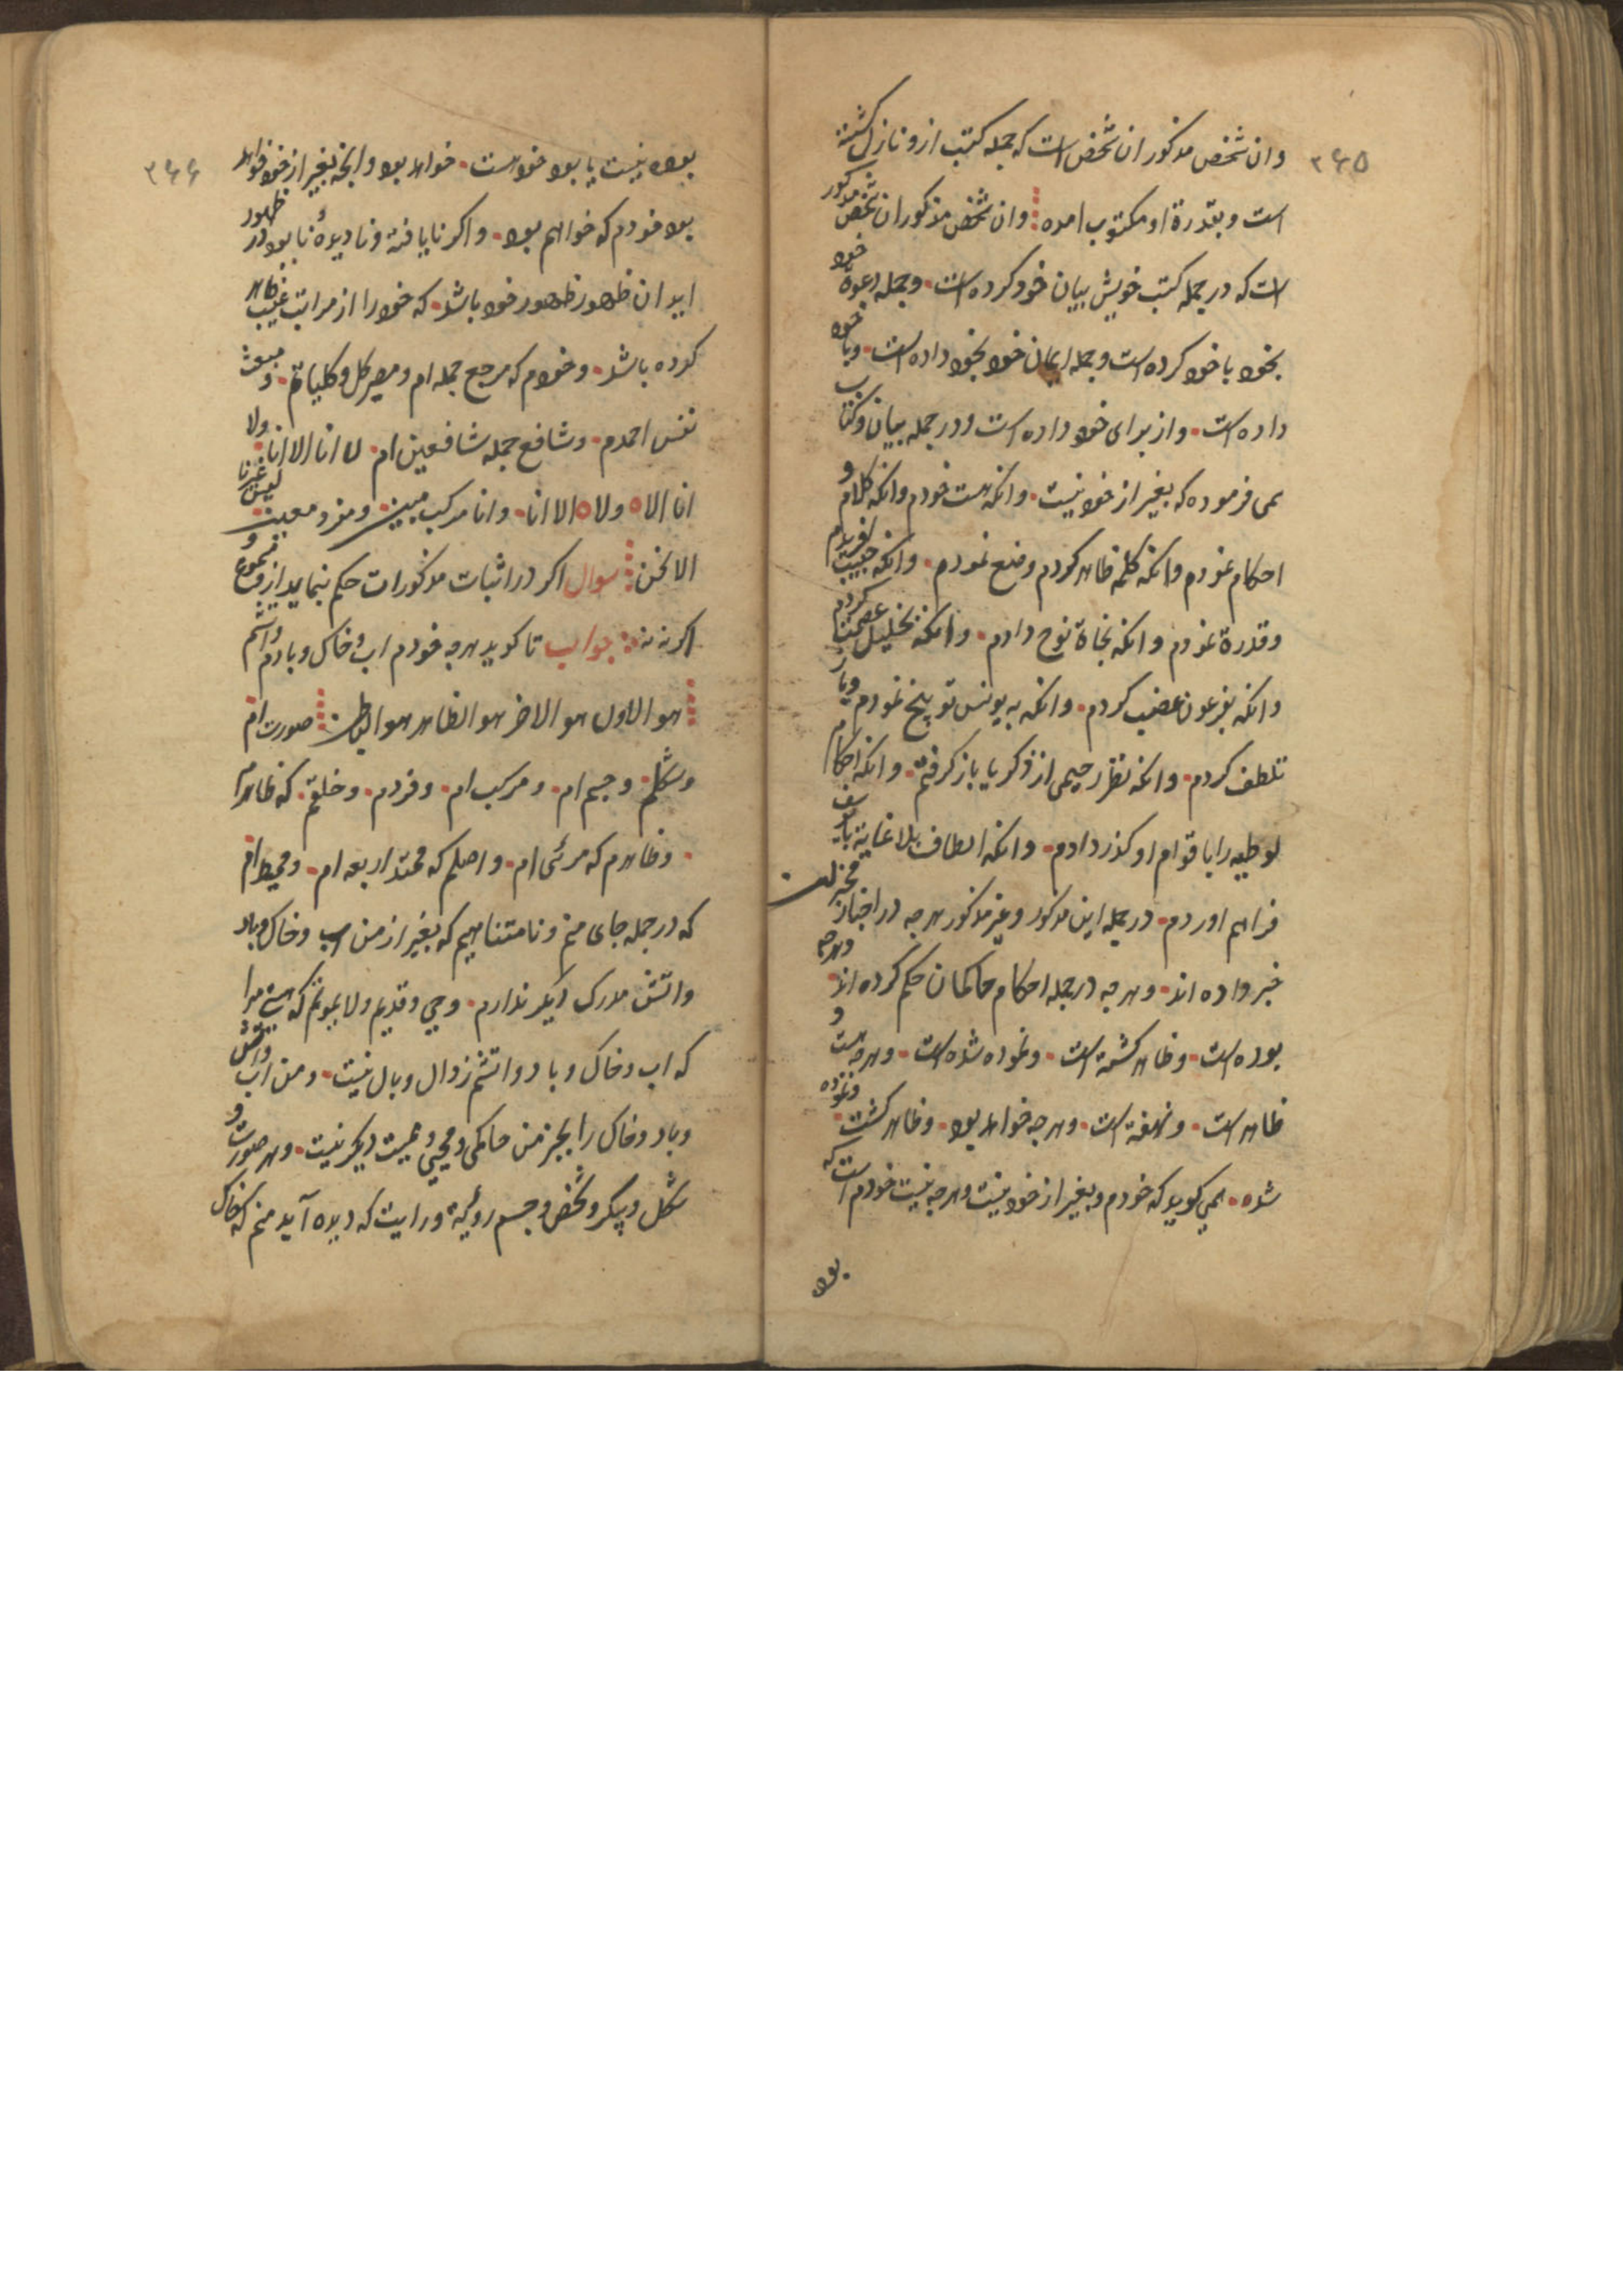 ۳۶۵
وان شخص مذکور ان شخص است که جمله کتب ازو نازل کشته
است و بقدرة او مکتوب امده وان شخص مذکور ان شخص مذکور
است که در جمله کتب خویش بیان خود کرده است و جمله دعوة خود
بخود با خود کرده است و جمله ایمان خود بخود داده است و با خود
داده است و از برای خود داده است و در جمله بیان و کتاب
می فرموده که بغیر از خود نیست وانکه هست خودم وانکه کلام و
احکام نمودم وانکه کلمه ظاهر کردم و وضع نمودم وانکه حبیب افریدم
و قدرة نمودم وانکه نجاة نوح دادم وانکه بخلیل عصمت کردم
وانکه بفرعون غضب کردم وانکه به یونس توبیخ نمودم و باز
تلطف کردم وانکه نظر رحیمی از ذکریا باز کرفتم وانکه احکام
لوطیه را با قوام او کذر دادم وانکه الطاف بلا غایة با یوسف
فراهم اوردم در جمله این مذکور و غیر مذکور هرجه در اخبار مخبران
خبر داده اند و هرجه در جمله احکام حاکمان حکم کرده اند و هرجه
بوده است و ظاهر کشته است و نموده شده است و هرجه هست و
ظاهر است و نهفته است و هرجه خواهد بود و ظاهر کشت و نموده
شده می کوید که خودم و بغیر از خود نیست و هرجه نیست خودم است که
بود
۳۶۶
بوده نیست یا بود خود است خواهد بود وانچه بغیر از خود خواهد
بود خودم که خواهم بود واکر نا یافتهٔ و نا دیدهٔ نا بود در ظهور
اید ان ظهور ظهور خود باشد که خود را از مراتب غیب ظاهر
کرده باشد و خودم که مرجع جمله ام و مصیر کل و کلیاتم و مبعث
نفس احمدم و شافع جمله شافعین ام لا انا الا انا ولا
انا الاه ولاه الا انا وانا مرکب مبین و مفرد معین لیس غیرنا
الا نحن سوال اکر در اثبات مذکورات حکم بنماید از مجموع و
اکر نه نه جواب تا کوید هرجه خودم اب و خاک و بادم و اتشم
هو الاول هو الاخر هو الظاهر هو الباطن صورت ام
و شکلم و جسم ام و مرکب ام و فردم و خلقم که ظاهرم
و ظاهرم که مرئی ام و اصلم که محتد اربعه ام و محیط ام
که در جمله جای منم و نامتناهییم که بغیر از من اب و خاک و باد
واتش مدرک دیکر ندارم و حی و قدیم و لا یموتم که هستی مرا
که اب و خاک و باد و اتشم زوال و بال نیست و من اب واتش
و باد و خاک را بجز من حاکمی و محیی و ممیت دیکر نیست و هر صورت و
شکل و پیکر و شخص و جسم روئیة و رایت که دیده آید منم که خاک